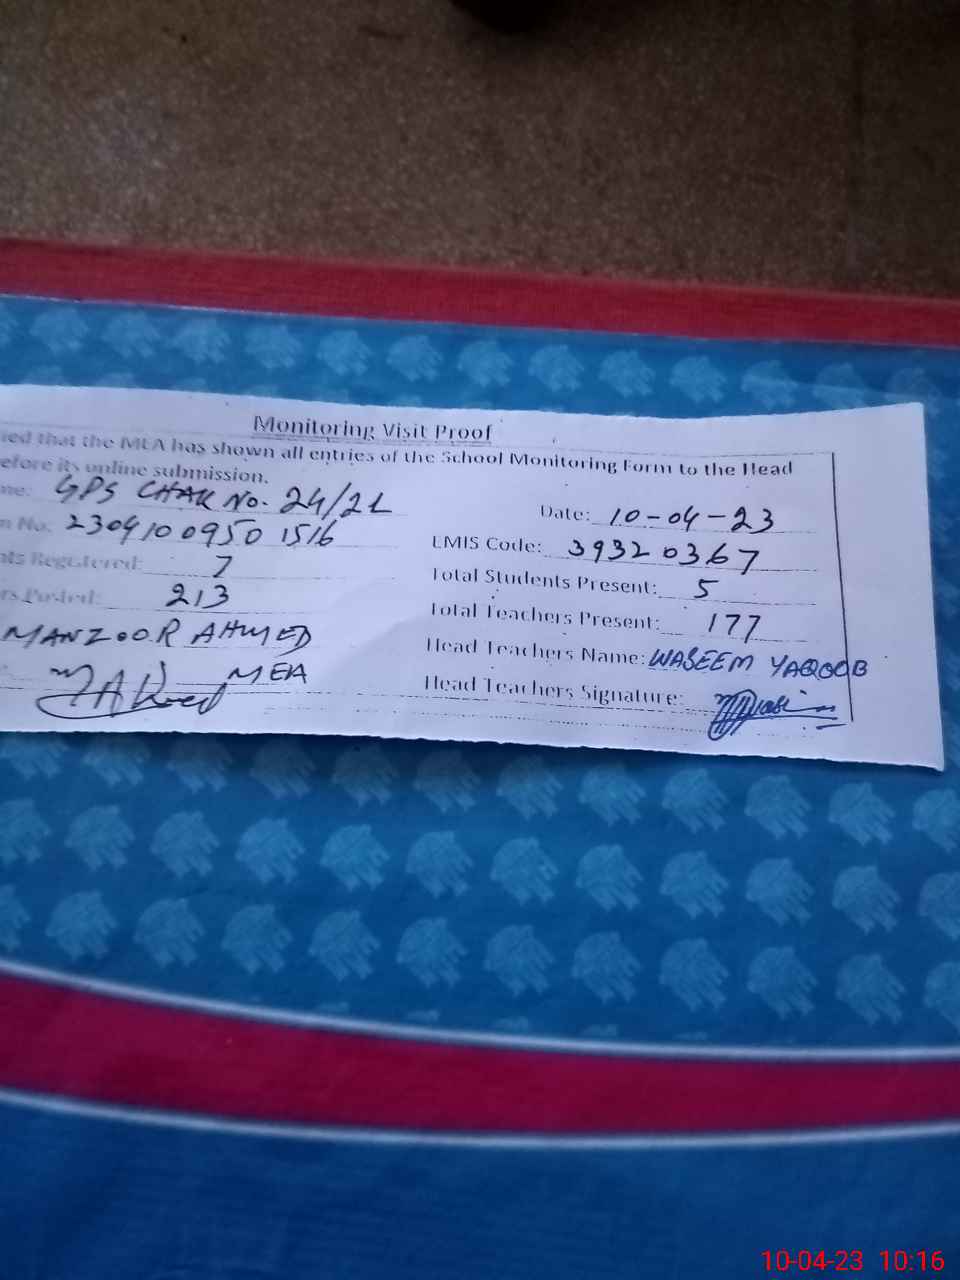 Monitoring Visit Proof
ied that the MEA has shown all entries of the School Monitoring Form to the Head
efore its online submission.
me: GPS CHAK No. 24/2L
Date: 10-04-23
n No: 2304100950 1516
EMIS Code: 39320367
nts Registered: 7
Total Students Present: 5
rs Posted: 213
Total Teachers Present: 177
MANZOOR AHMED
Head Teachers Name: WASEEM YAQOOB
MEA
Head Teachers Signature:
10-04-23 10:16